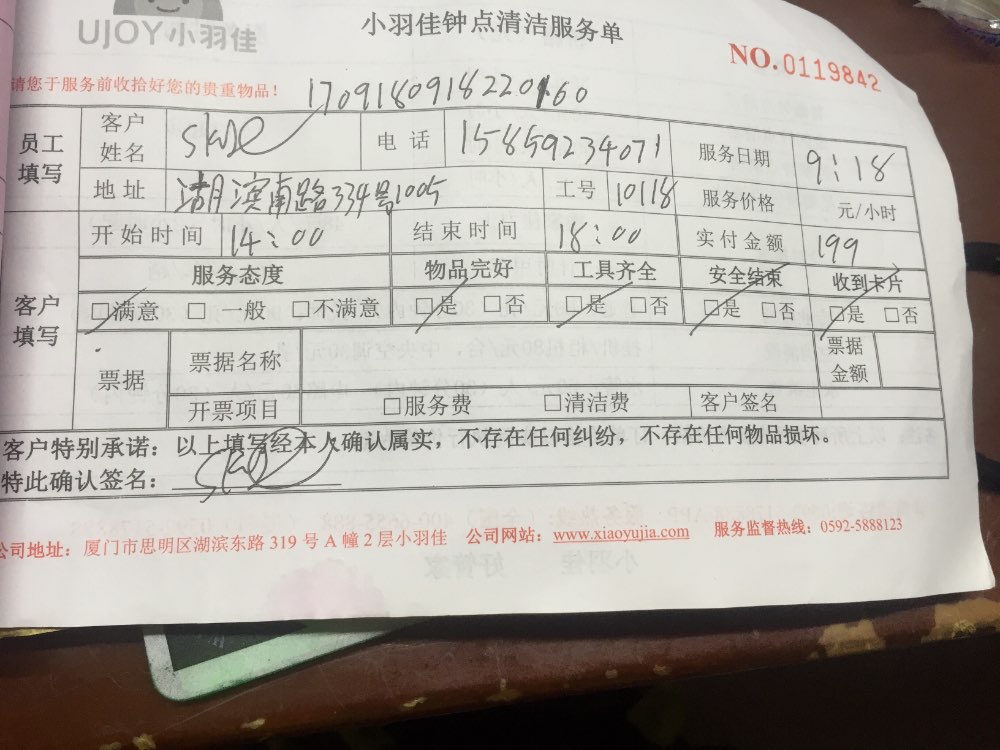 UJOY小羽佳
小羽佳钟点清洁服务单
NO.0119842
请您于服务前收拾好您的贵重物品！
170918091822060
员工填写 客户姓名 skde 电话 15859234071 服务日期 9:18
地址 湖滨南路334号1005 工号 10118 服务价格 元/小时
开始时间 14:00 结束时间 18:00 实付金额 199
客户填写 服务态度 物品完好 工具齐全 安全结束 收到卡片
□满意 □一般 □不满意 □是 □否 □是 □否 □是 □否 □是 □否
票据 票据名称 票据金额
开票项目 □服务费 □清洁费 客户签名
客户特别承诺：以上填写经本人确认属实，不存在任何纠纷，不存在任何物品损坏。
特此确认签名：
公司地址：厦门市思明区湖滨东路 319 号 A 幢 2 层小羽佳 公司网站：www.xiaoyujia.com 服务监督热线：0592-5888123